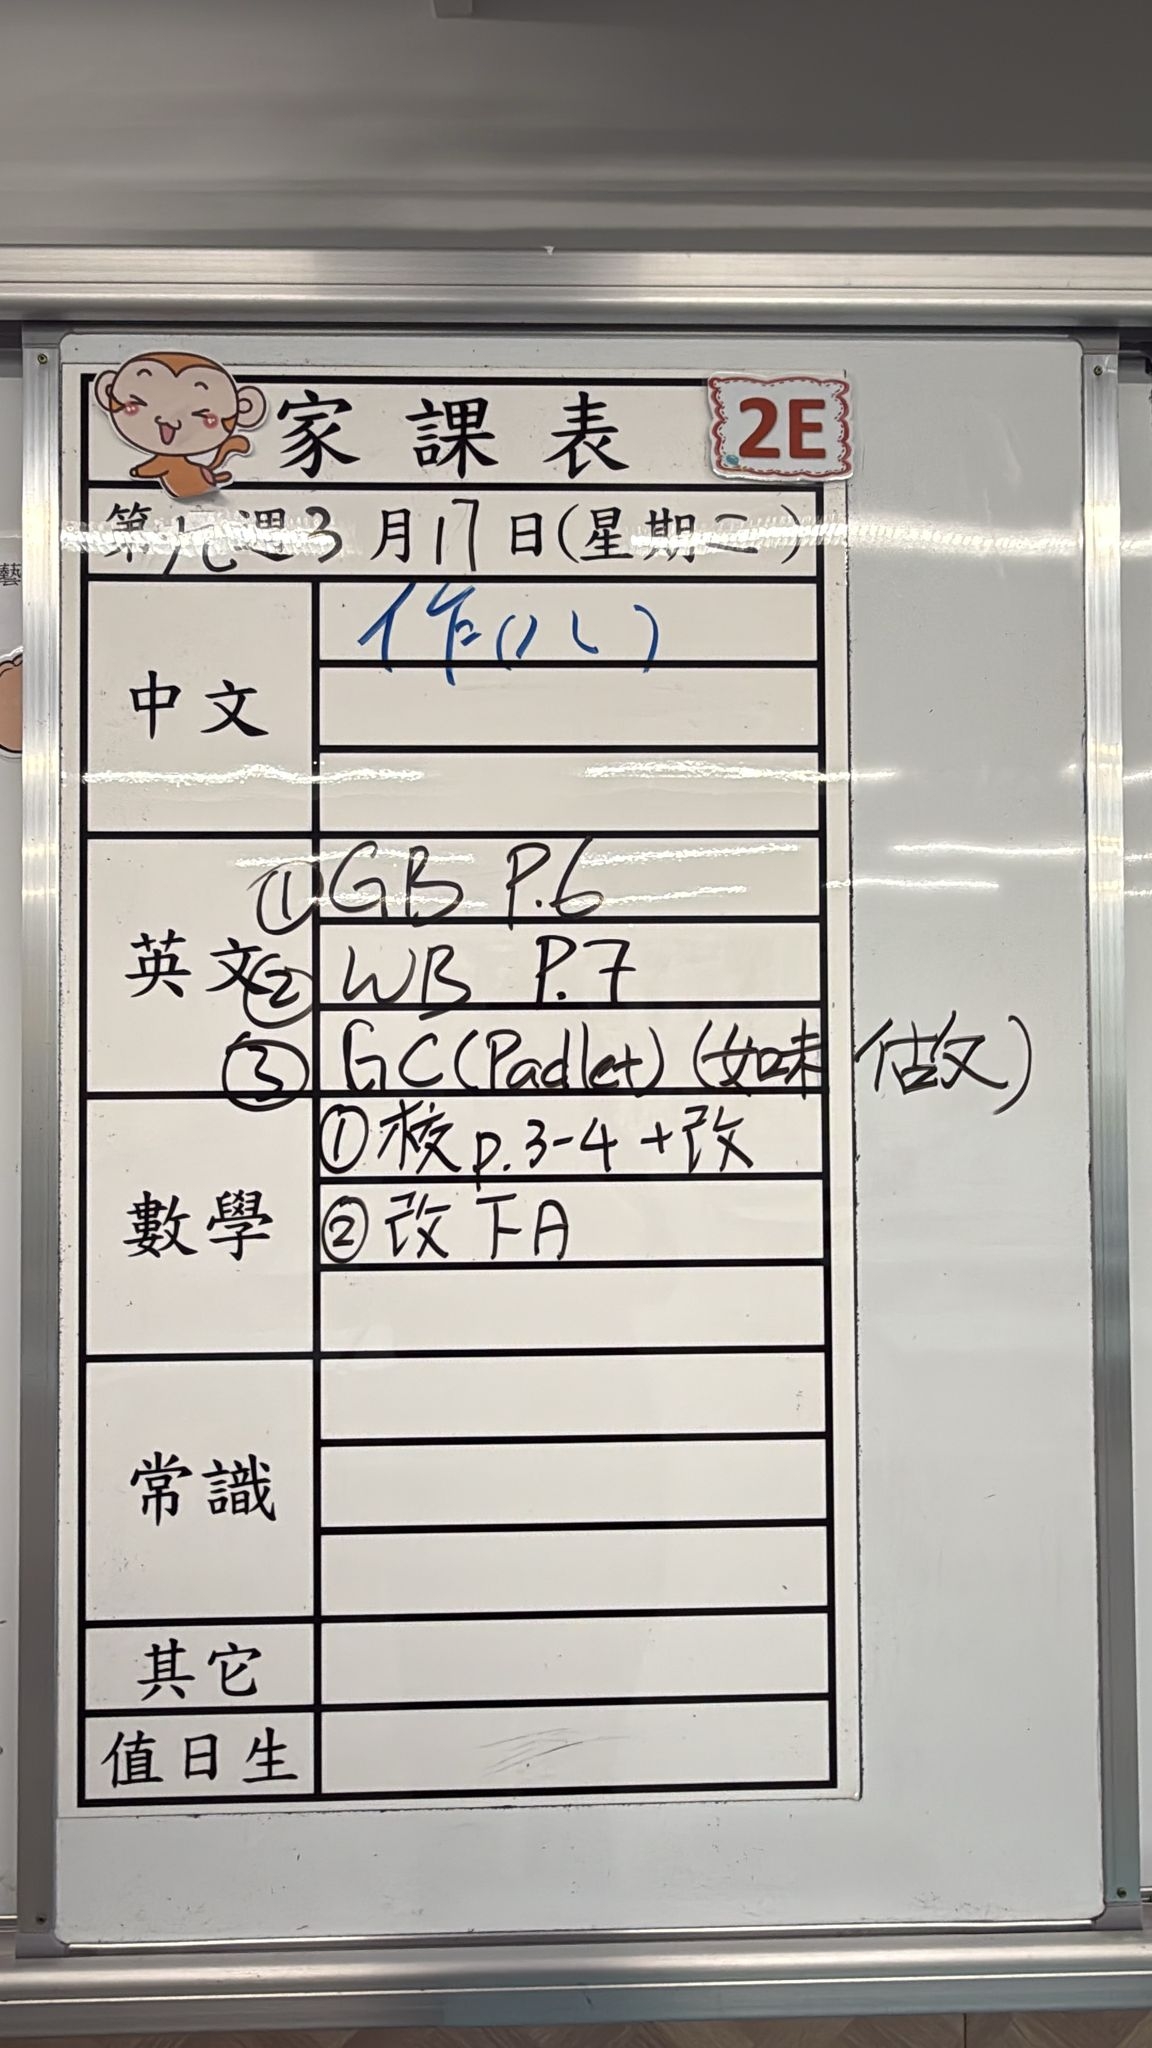 家課表 2E
第九週3月17日(星期二)
中文
作(八)
英文
① GB P.6
② WB P.7
③ GC(Padlet) (如未做交)
數學
① 校 p.3-4 + 改
② 改 下A
常識
其它
值日生